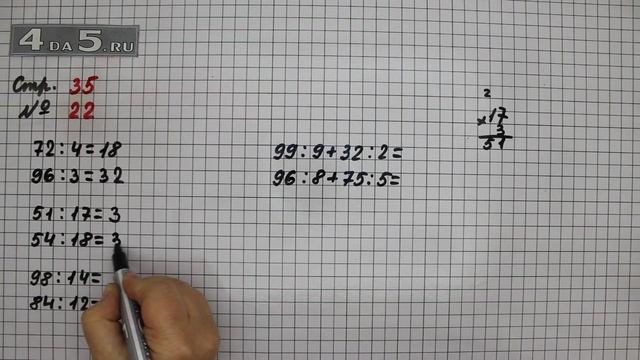 4DA5.RU
Стр. 35
№ 22
72 : 4 = 18
96 : 3 = 32
51 : 17 = 3
54 : 18 = 3
98 : 14 =
84 : 12 =
99 : 9 + 32 : 2 =
96 : 8 + 75 : 5 =
2
17
× 3
51